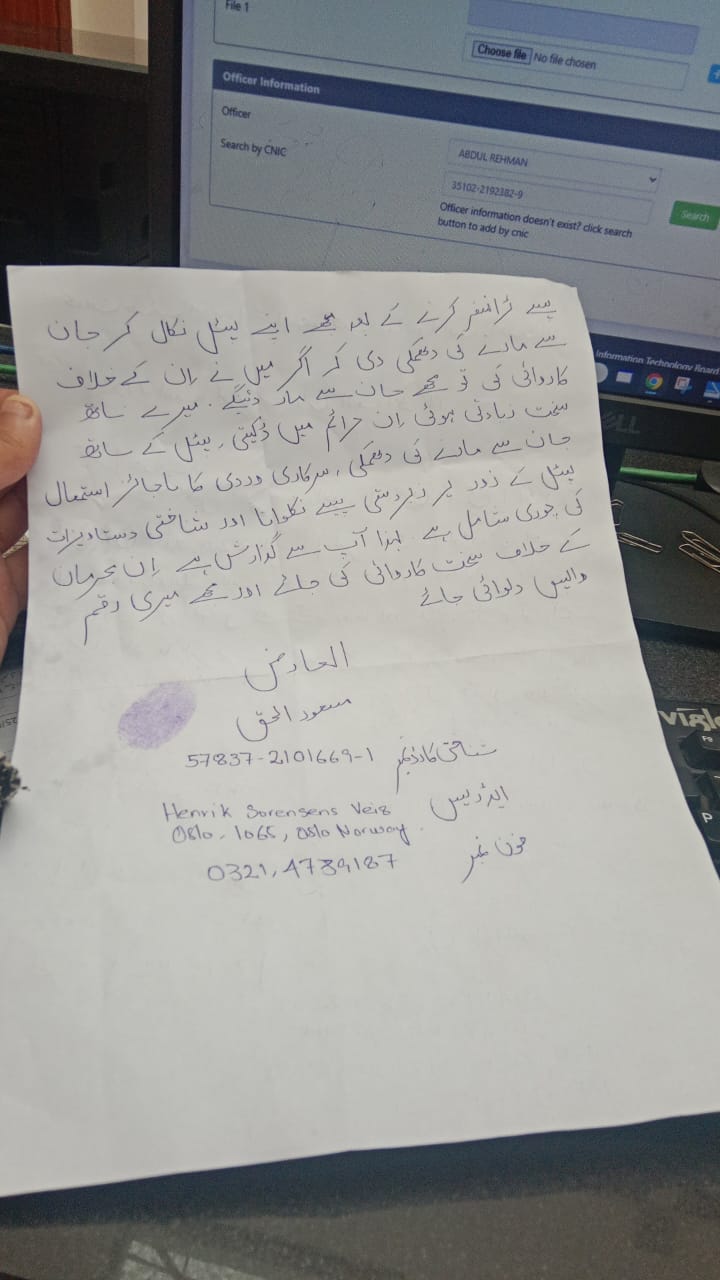 File 1
Choose file No file chosen
Officer Information
Officer
ABDUL REHMAN
Search by CNIC
35102-2192382-9
Search
Officer information doesn't exist? click search
button to add by cnic
Information Technology Board
DELL
پیسے ٹرانسفر کرنے کے بعد مجھے اپنے پسٹل نکال کر جان
سے مارنے کی دھمکی دی کہ اگر میں نے ان کے خلاف
کاروائی کی تو مجھے جان سے مار دینگے۔ میرے ساتھ
سخت زیادتی ہوئی ان جرائم میں ڈکیتی، پسٹل کے ساتھ
جان سے مارنے کی دھمکی، سرکاری وردی کا ناجائز استعمال
پسٹل کے زور پر زبردستی پیسے نکلوانا اور شناختی دستاویزات
کی چوری شامل ہے لہذا آپ سے گزارش ہے ان مجرمان
کے خلاف سخت کاروائی کی جائے اور مجھے میری رقم
واپس دلوائی جائے
العارض
مسعود الحق
شناختی کارڈ نمبر 57837-2101669-1
ایڈریس Henrik Sorensens Vei8
Oslo-1065, Oslo Norway.
فون نمبر 0321,4789187
F9
P